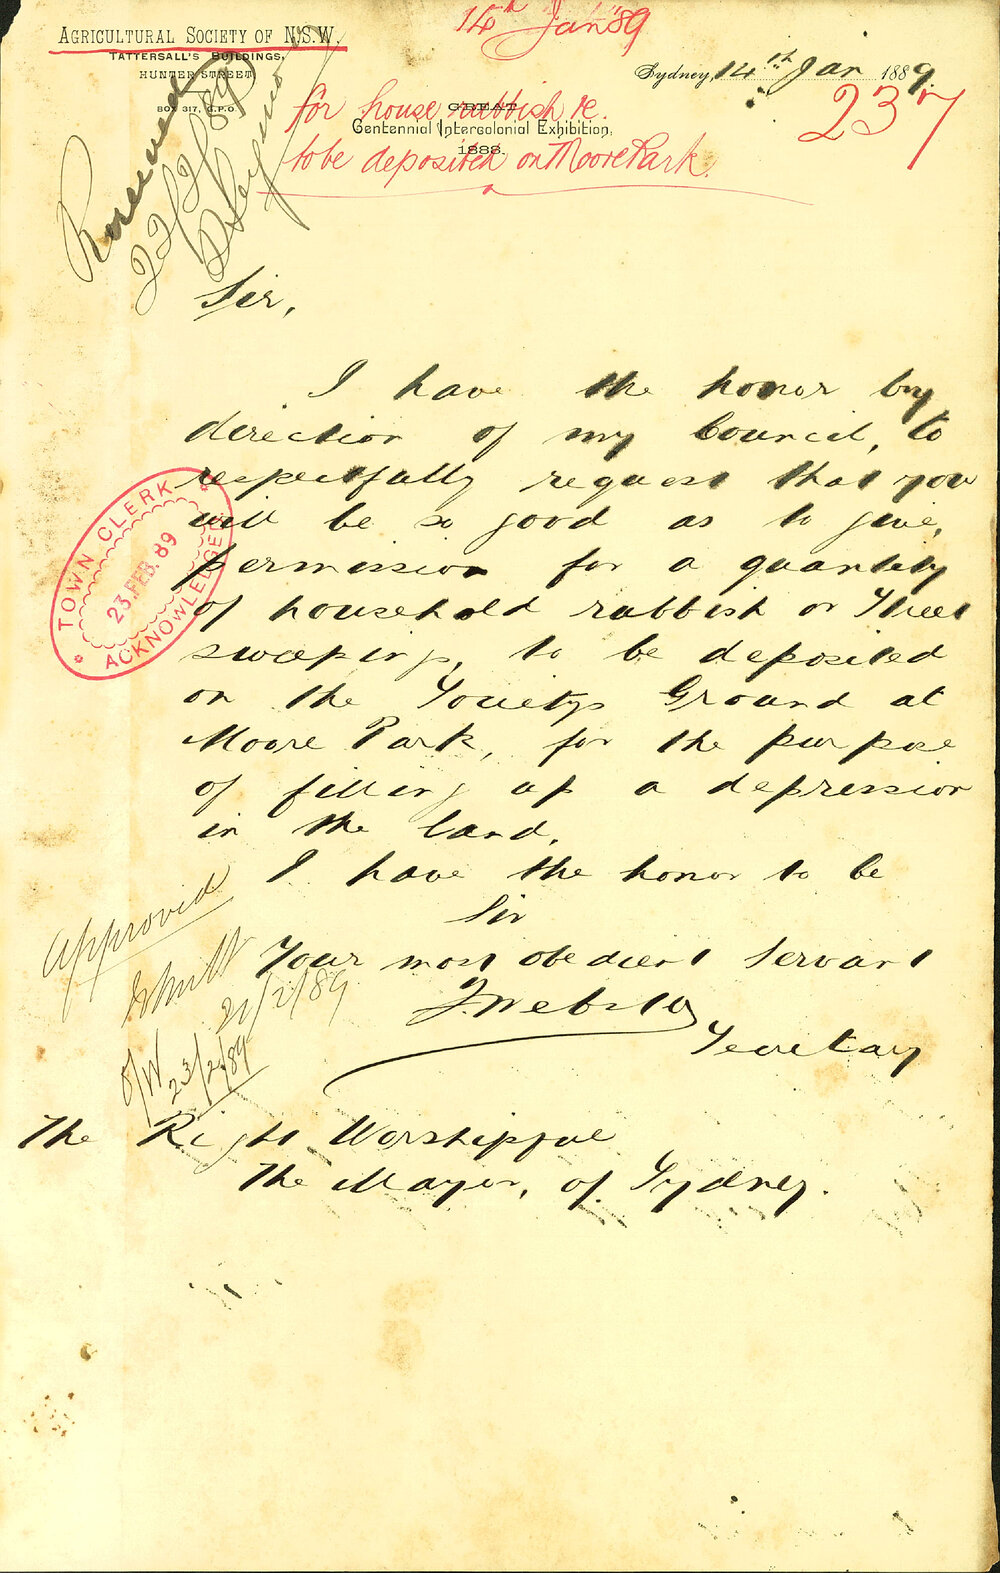 AGRICULTURAL SOCIETY OF N.S.W.
TATTERSALL'S BUILDINGS,
HUNTER STREET,
BOX 317, G.P.O.
14th Jan '89
Sydney, 14th Jan 1889.
237
for house rubbish &c.
GREAT
Centennial Intercolonial Exhibition,
1888.
to be deposited on Moore Park.
Received
22/2/89
Sir,
I have the honor by
direction of my Council, to
respectfully request that you
will be so good as to give,
permission for a quantity
of household rubbish or Street
sweepings, to be deposited
on the Society's Ground at
Moore Park, for the purpose
of filling up a depression
in the land.
I have the honor to be
Sir
Your most obedient Servant
J. Webster
Secretary
TOWN CLERK
23.FEB.89
ACKNOWLEDGED
Approved
21/2/89
23/2/89
The Right Worshipful
The Mayor, of Sydney.